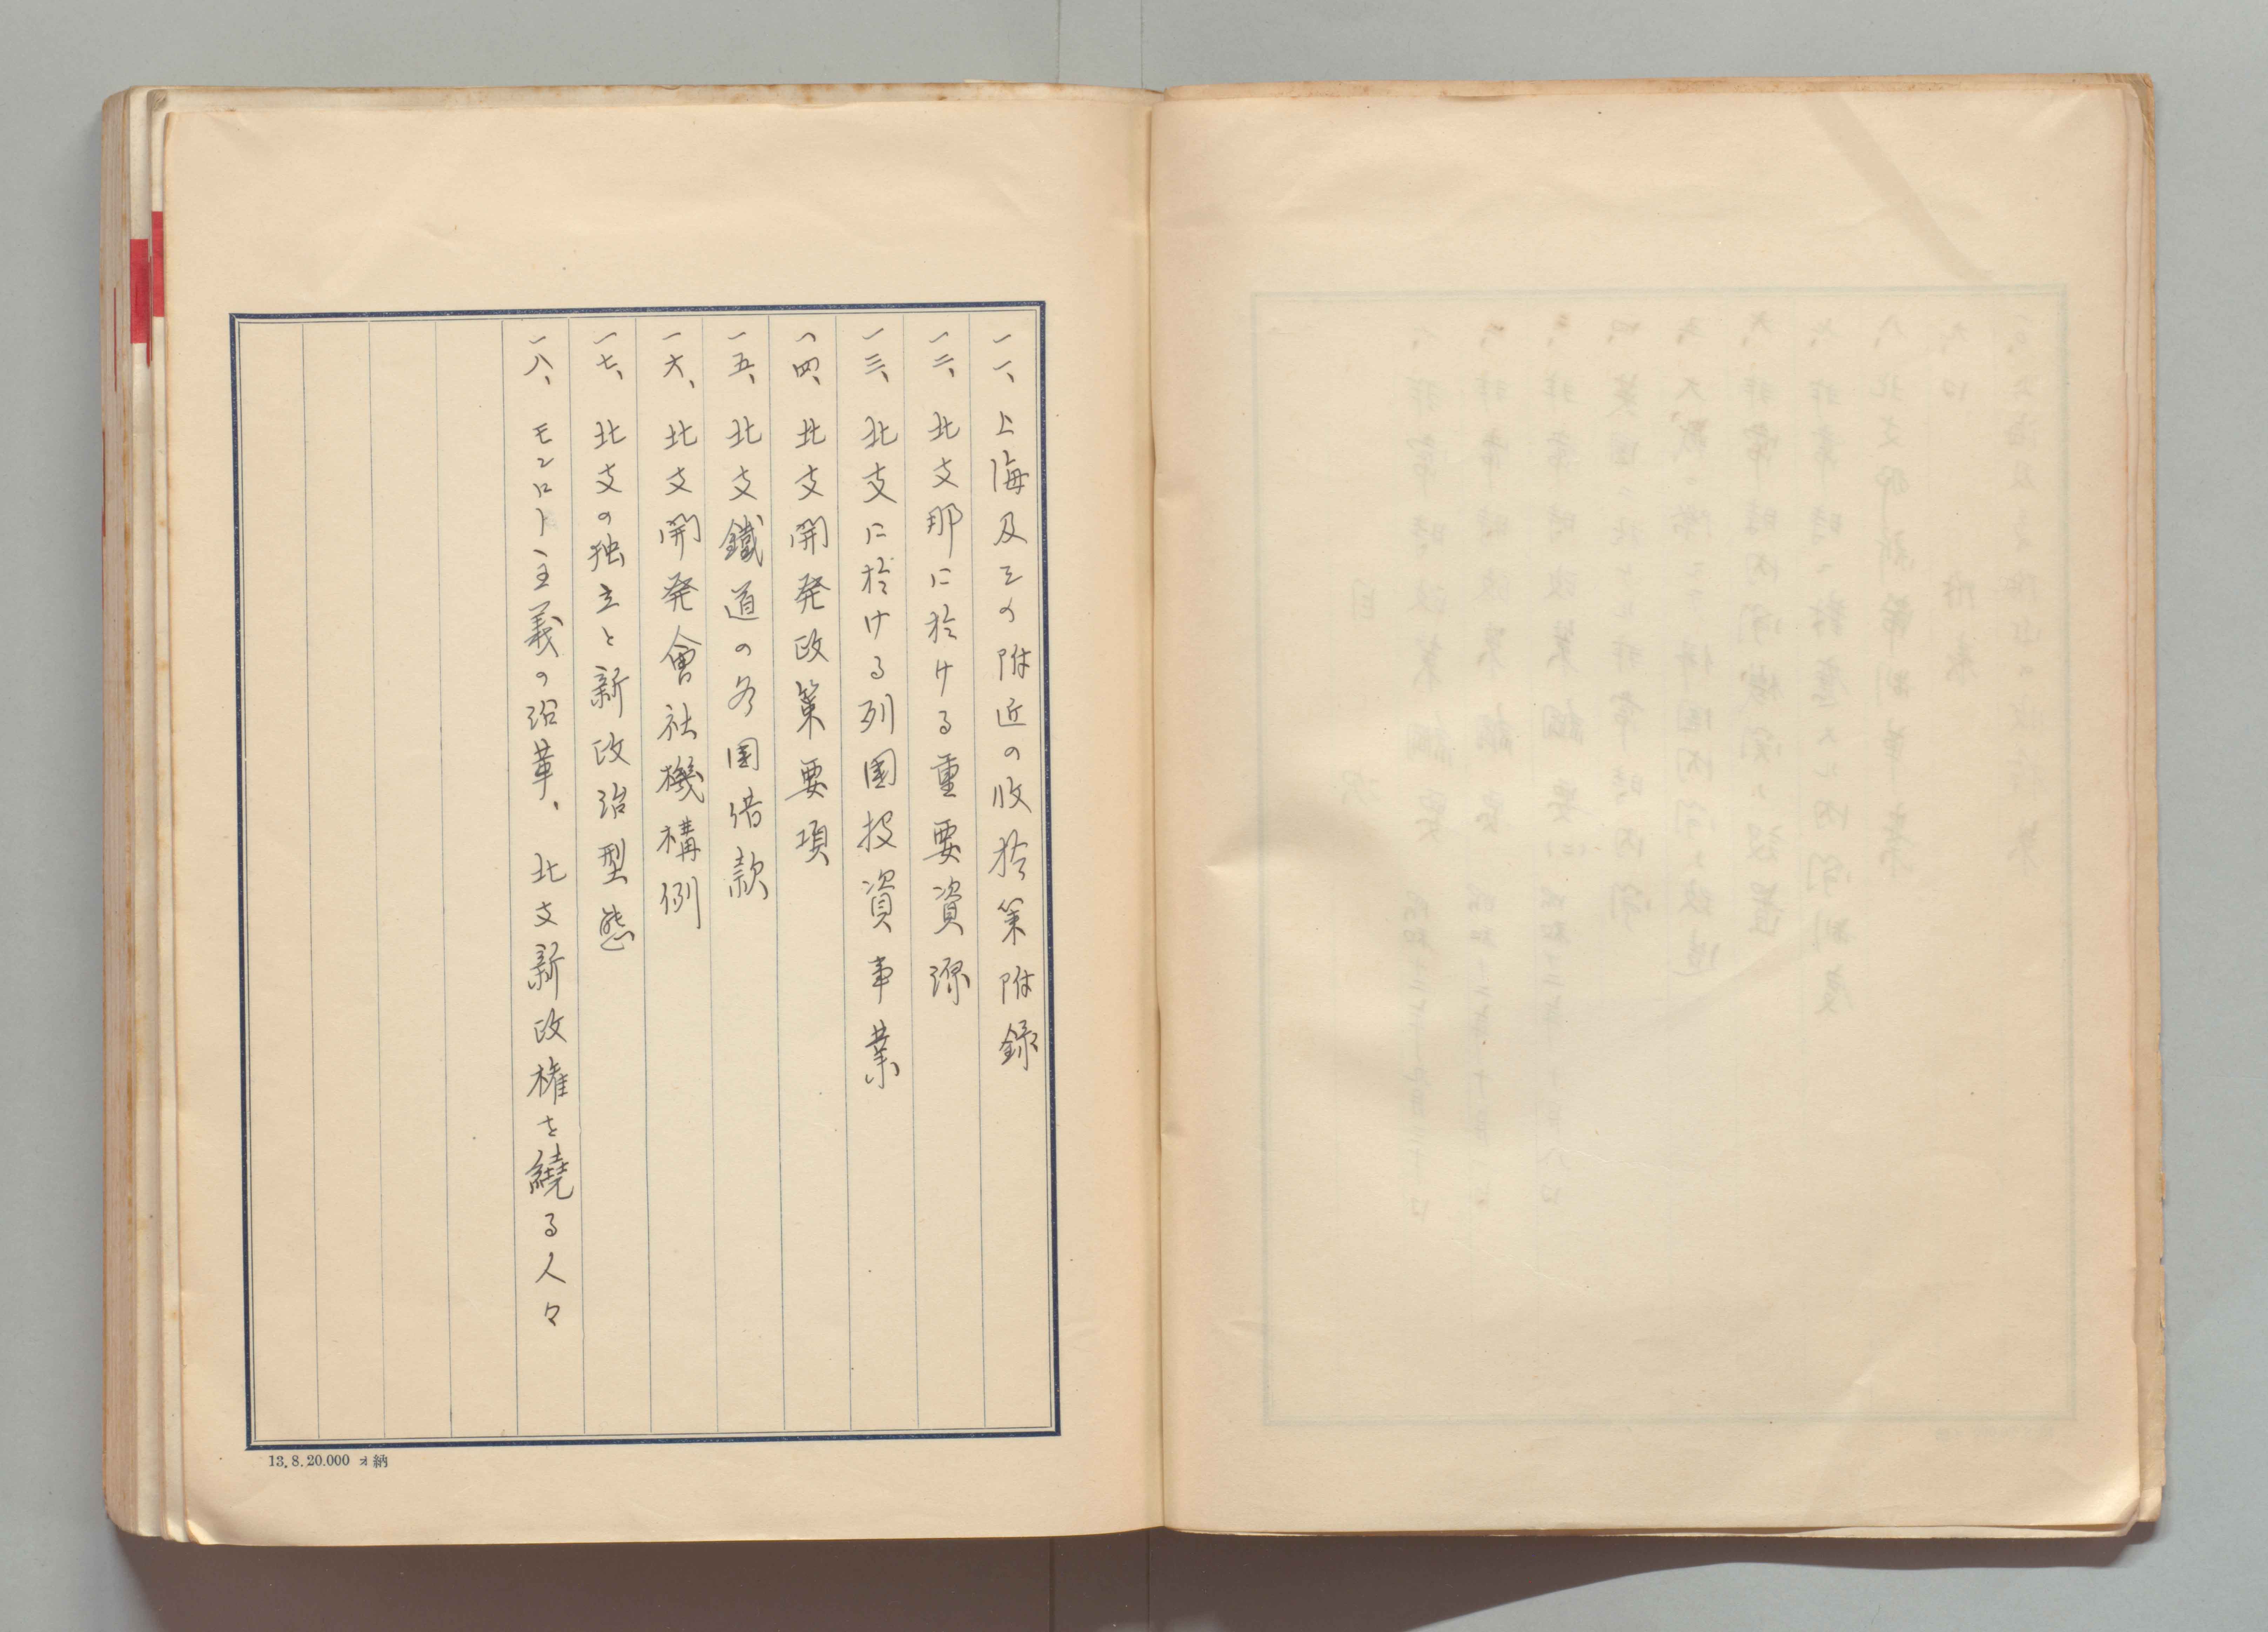 一一、上海及その附近の収拾策附録
一二、北支那に於ける重要資源
一三、北支に於ける列国投資事業
一四、北支開発政策要項
一五、北支鐵道の各国借款
一六、北支開発會社機構例
一七、北支の独立と新政治型態
一八、モンロー主義の沿革、北支新政権を繞る人々
13.8.20.000 ォ納